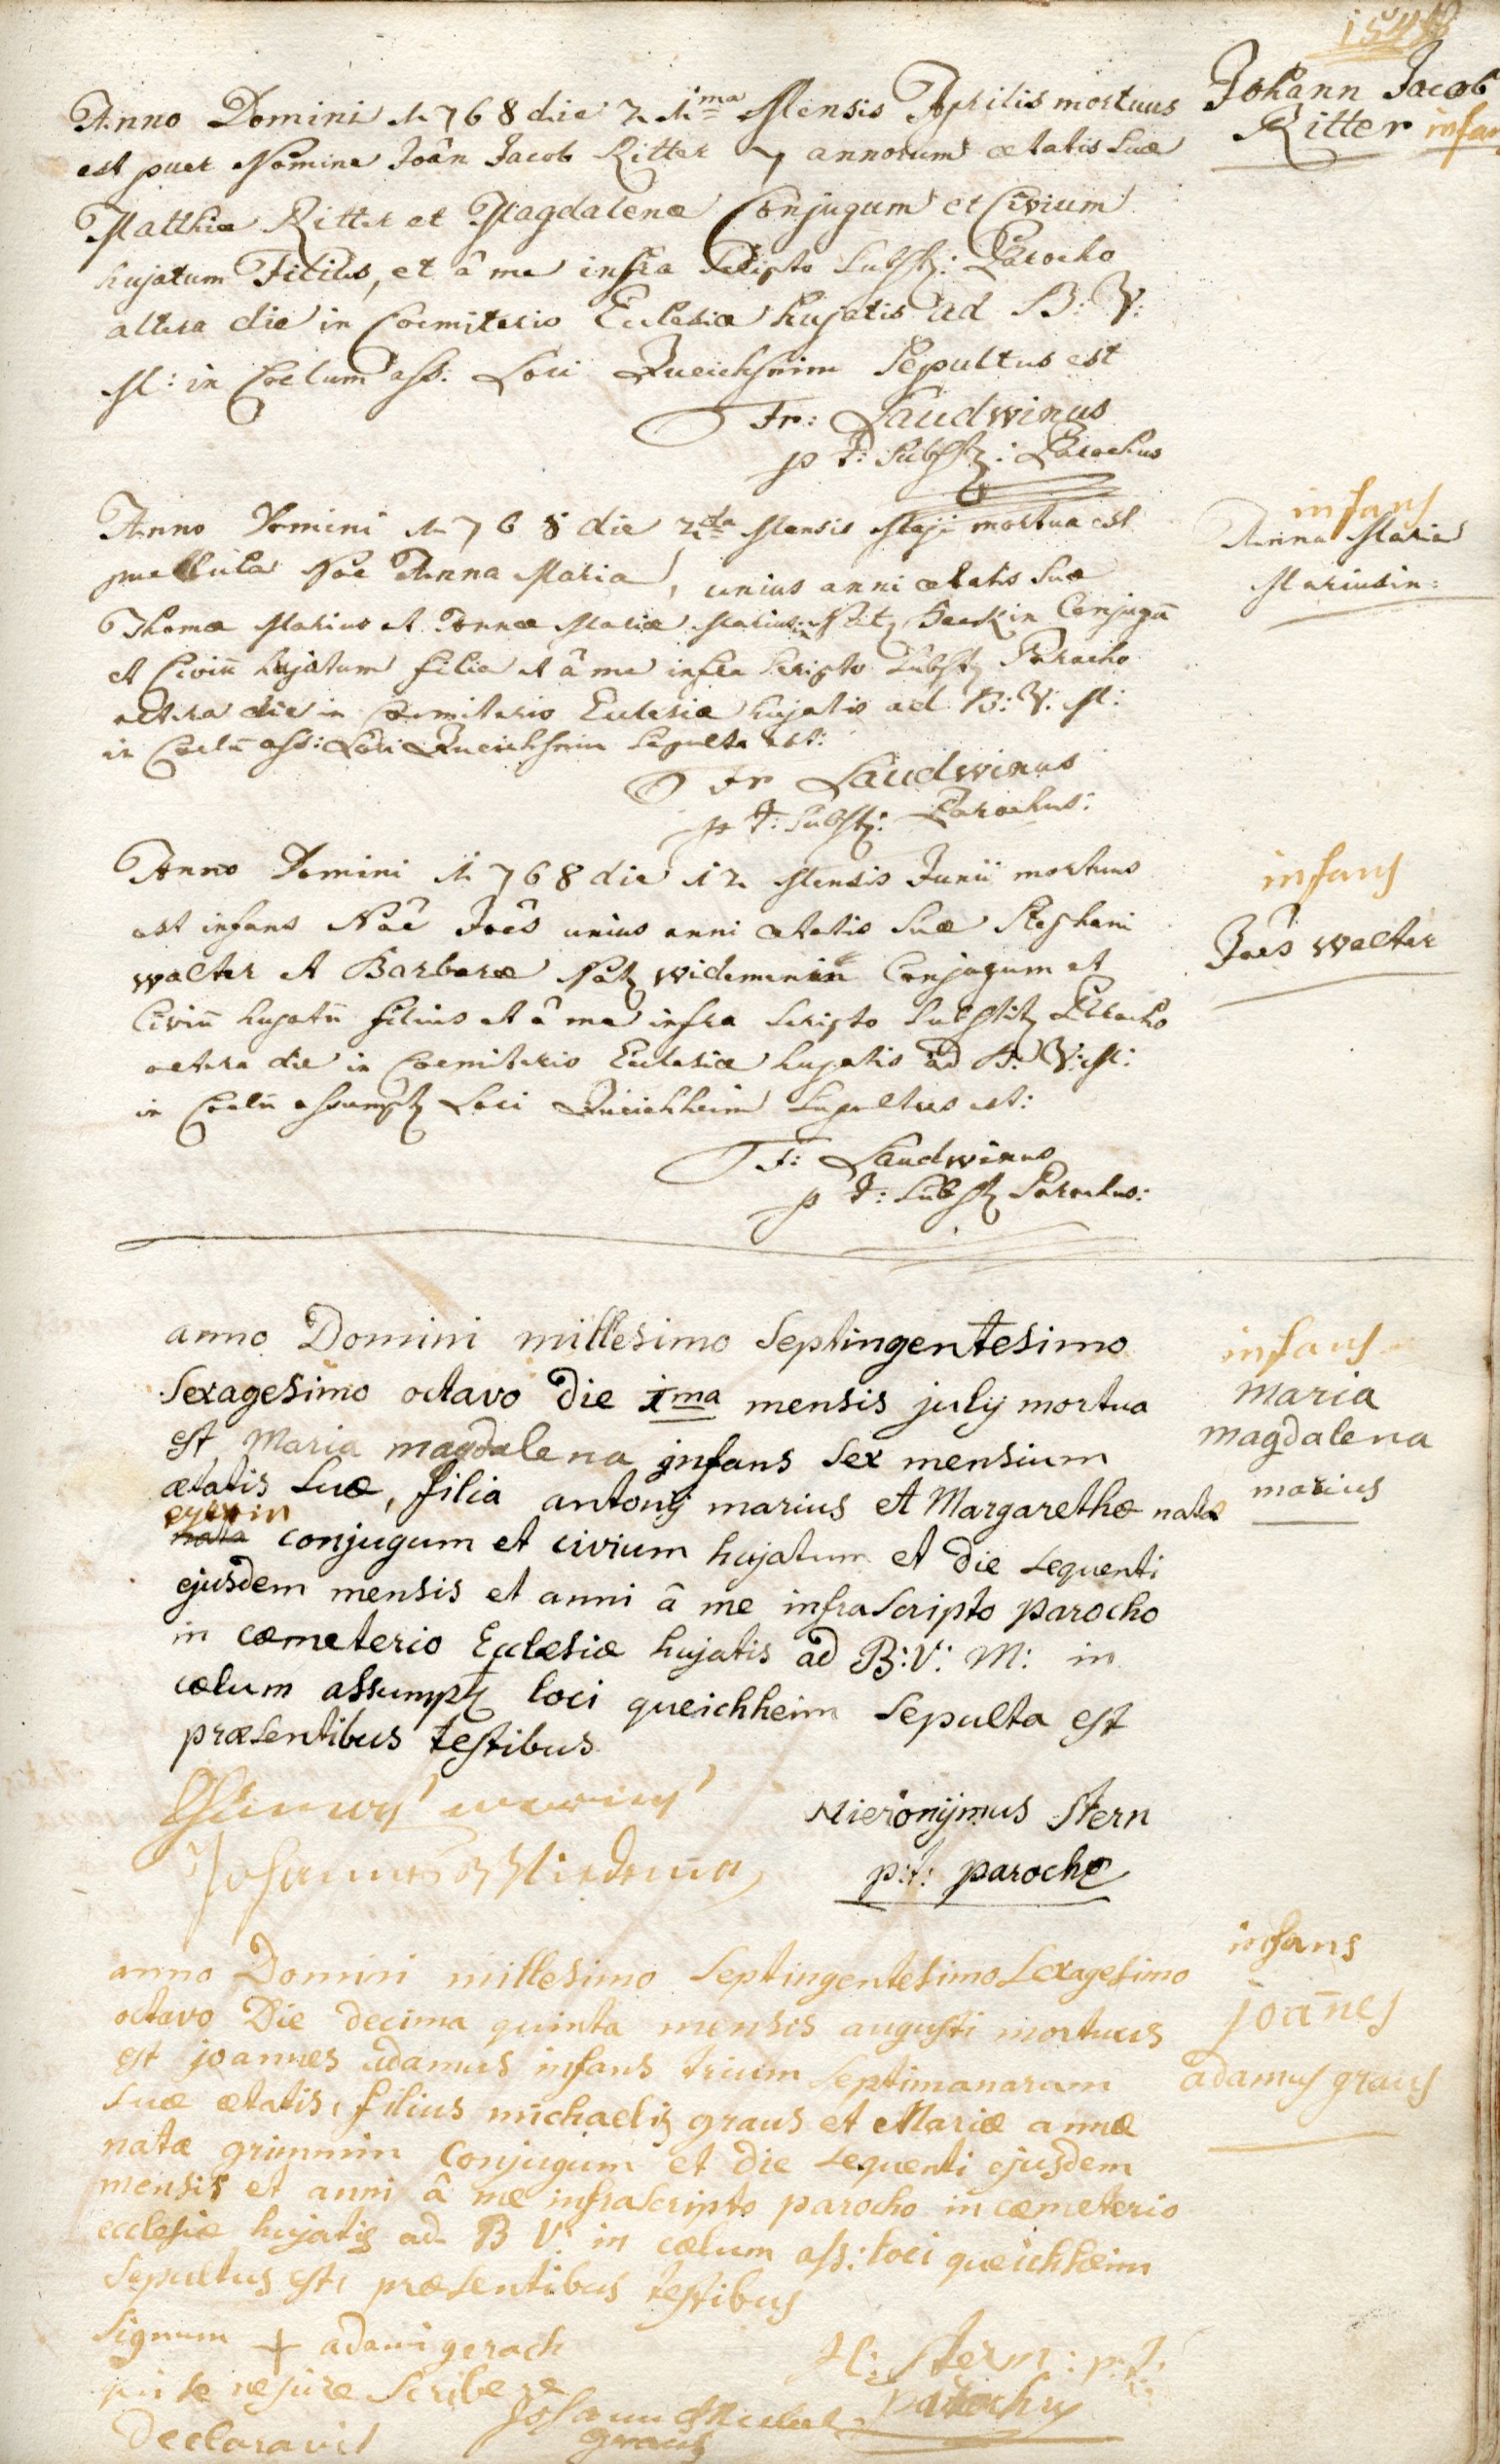 Johann Jacob
Ritter infans
Anno Domini 1768 die 21ma Mensis Aprilis mortuus
est puer Nomine Joân Jacob Ritter 7 annorum ætatis suæ
Matthiæ Ritter et Magdalenæ Conjugum et Civium
hujatum Filius, et â me infra scripto Subst: Parocho
altera die in Coemiterio Ecclesiæ hujatis ad B: V:
M: in Coelum ass: Loci Queichheim Sepultus est
Fr: Laudwinus
p t: Subst: Parochus
infans
Anna Maria
Mariusin:
Anno Domini 1768 die 2da Mensis Maji mortua est
puellula Noe Anna Maria, unius anni ætatis suæ
Thomæ Marius et Annæ Mariæ Mariusin Conjugū
et Civiū hujatum filia et â me infra scripto Subst Parocho
altera die in Coemiterio Ecclesiæ hujatis ad B: V: M:
in Coelū ass: Loci Queichheim Sepulta est:
Fr Laudwinus
p t: Subst: Parochus:
infans
Joês Walter
Anno Domini 1768 die 12 Mensis Junii mortuus
est infans Noê Joês unius anni ætatis suæ Stephani
Walter et Barbaræ Widemenin Conjugum et
Civiū hujatū filius et â me infra scripto Substit Parocho
altera die in Coemiterio Ecclesiæ hujatis ad B: V: M:
in Coelū assumpt Loci Queichheim Sepultus est:
F: Laudwinus
p t: Subst Parochus:
infans
Maria
magdalena
marius
anno Domini millesimo Septingentesimo
Sexagesimo octavo die 1ma mensis july mortua
est Maria magdalena jnfans sex mensium
ætatis suæ, filia antony marius et Margarethæ natæ
nata conjugum et civium hujatum et die sequenti
ejusdem mensis et anni â me infrascripto parocho
in cæmeterio Ecclesiæ hujatis ad B: V: M: in
cælum assumpt loci queichheim sepulta est
præsentibus testibus
Hieronymus Stern
p:t: parochus
infans
joānes
adamus graus
anno Domini millesimo Septingentesimo Sexagesimo
octavo Die decima quinta mensis augusti mortuus
est joannes adamus infans trium septimanarum
suæ ætatis, filius michaelis graus et Mariæ annæ
natæ grimmin Conjugum et die sequenti ejusdem
mensis et anni â me infrascripto parocho in cæmeterio
ecclesiæ hujatis ad B V: in cælum ass: loci queichheim
Sepultus est, præsentibus testibus
Signum + adami gerach
qui se nescire Scribere
declaravit
Johann Michel
graus
H: Stern: p:t:
parochus